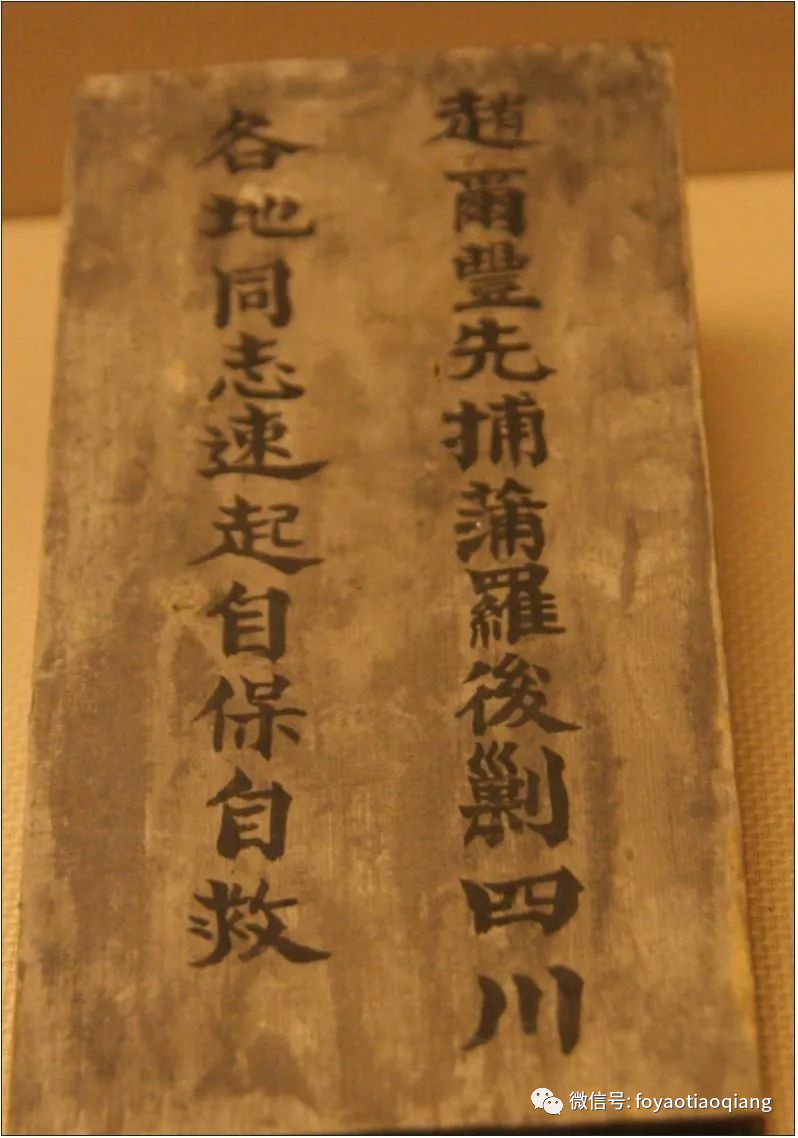 趙爾豐先捕蒲羅後剿四川
各地同志速起自保自救
微信号: foyaotiaoqiang